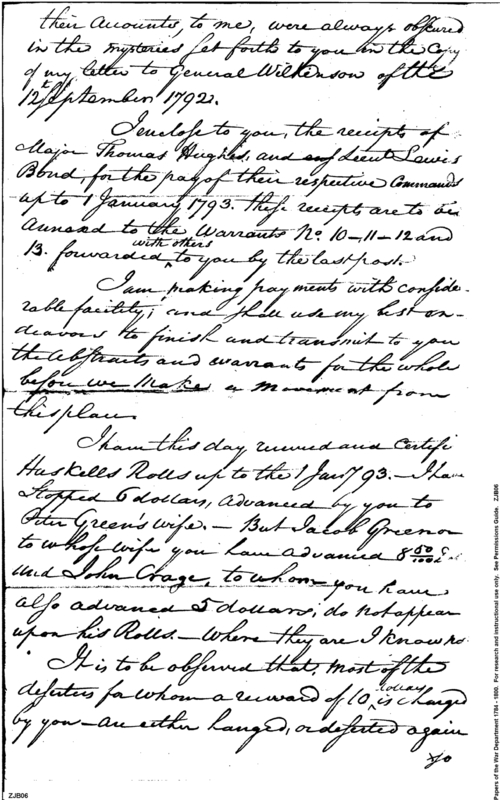 their accounts, to me, were always obscured
in the mysteries set forth to you in the Copy
of my letter to General Wilkenson of the
12th September 1792.
I enclose to you, the receipts of
Major Thomas Hughes, and Lieut Lewis
Bond, for the pay of their respective Commands
up to 1 January 1793. these receipts are to be
annexed to the Warrants No. 10-11-12 and
13. forwarded with others to you by the last post.
I am making payments with conside-
rable facility; and shall use my best en-
deavours to finish and transmit to you
the abstracts and warrants for the whole
before we make a movement from
this place.
I have this day received and Certifi
Haskells Rolls up to the 1 Jany 93. - I have
Stopped 6 dollars, advanced by you to
Peter Green's wife. - But Jacob
to whose wife you have advanced 8 50/100
and John Crage, to whom you have
also advanced 5 dollars, do not appear
upon his Rolls. - Where they are I know no
It is to be observed that, most of the
deserters for whom a reward of 10 dollars is charged
by you - are either hanged, or deserted again
ZJB06
Papers of the War Department 1784 - 1800. For research and instructional use only. See Permissions Guide. ZJB06